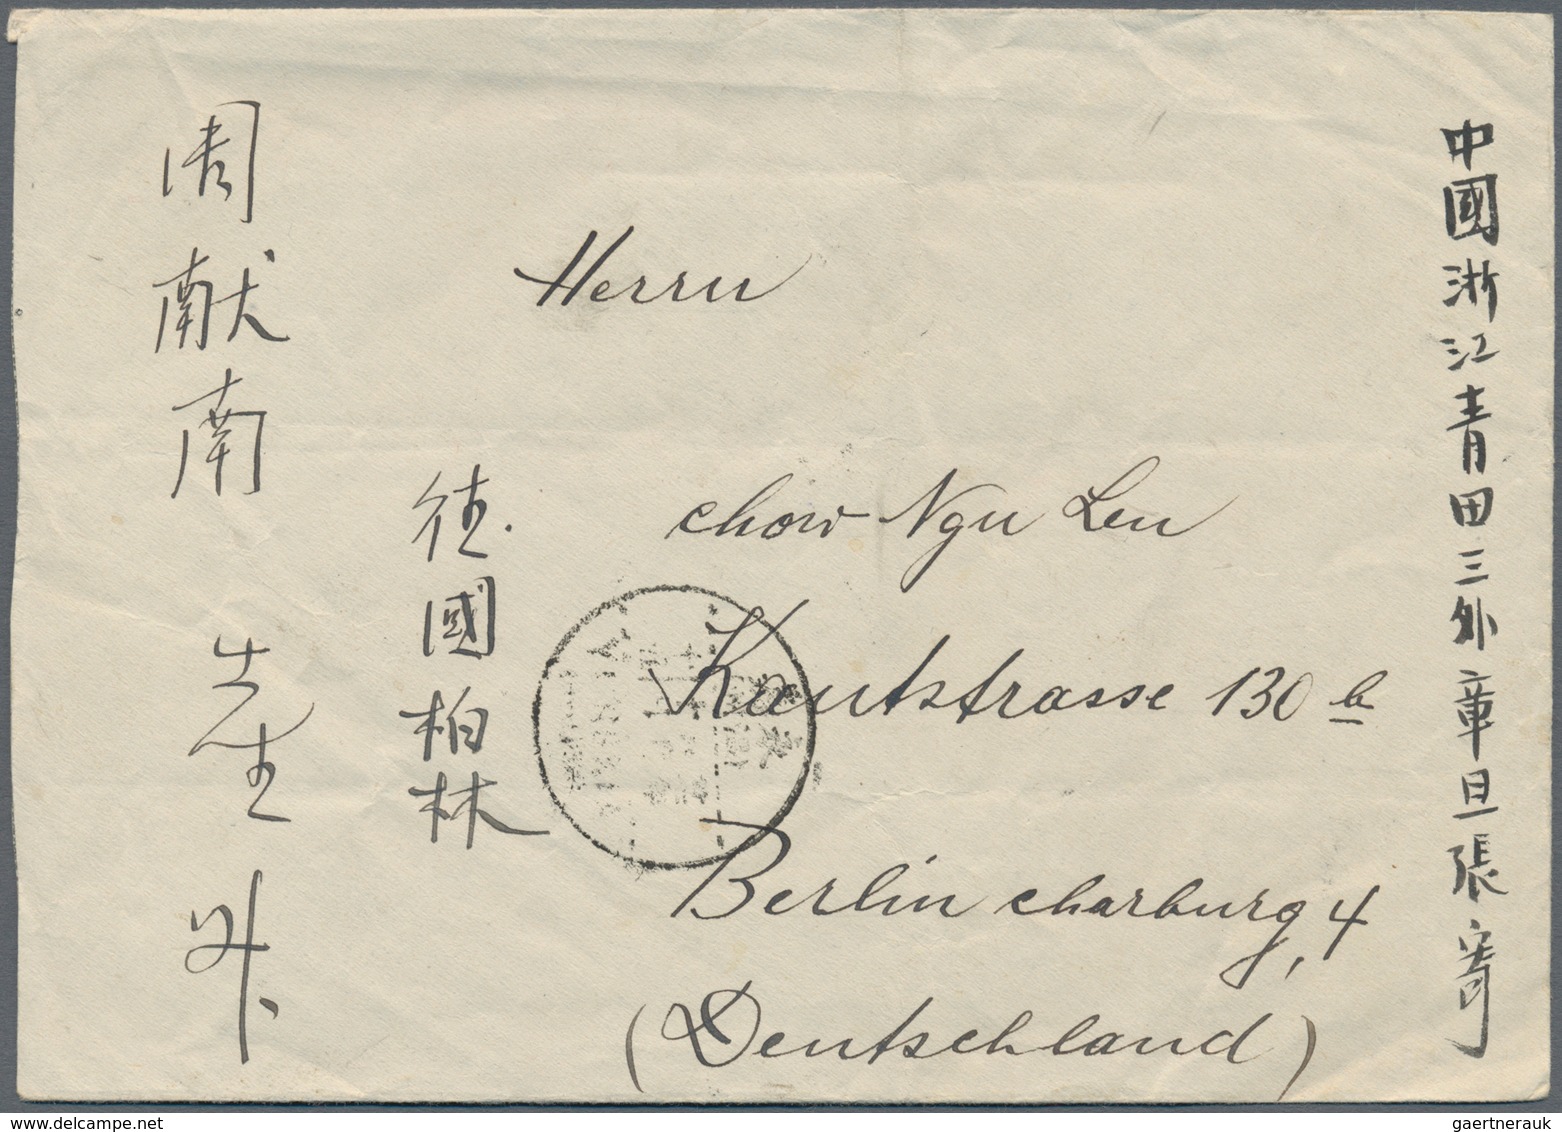 中國浙江青田三外章旦張寄
Herrn
chow Ngu Len
Kantstrasse 130 b
Berlin charburg, 4
(Deutschland)
德國柏林
周献南
先生
gaertnerauk